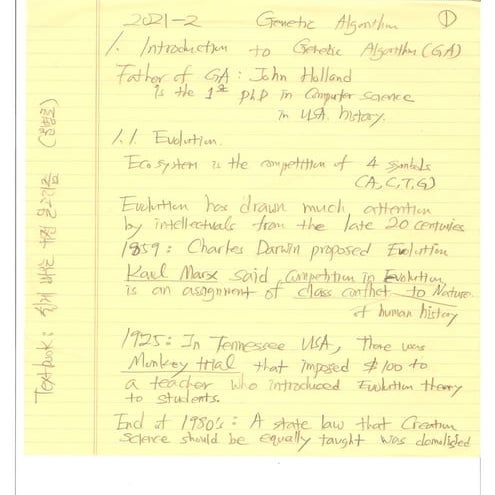 2021-2 Genetic Algorithm ①
1. Introduction to Genetic Algorithm (GA)
Father of GA : John Holland
is the 1st phD in Computer science
in USA history.
1.1 Evolution.
Eco system is the competition of 4 symbols
(A, C, T, G)
Evolution has drawn much attention
by intellectuals from the late 20 centuries
1859 : Charles Darwin proposed Evolution
Karl Marx said, Competition in Evolution
is an assignment of class conflict to Nature.
of human history
1925 : In Tennessee USA, There was
Monkey trial that imposed $100 to
a teacher who introduced Evolution theory
to students.
End of 1980's : A state law that Creation
Science should be equally taught was demolished
Textbook : 쉽게 배우는 유전 알고리즘